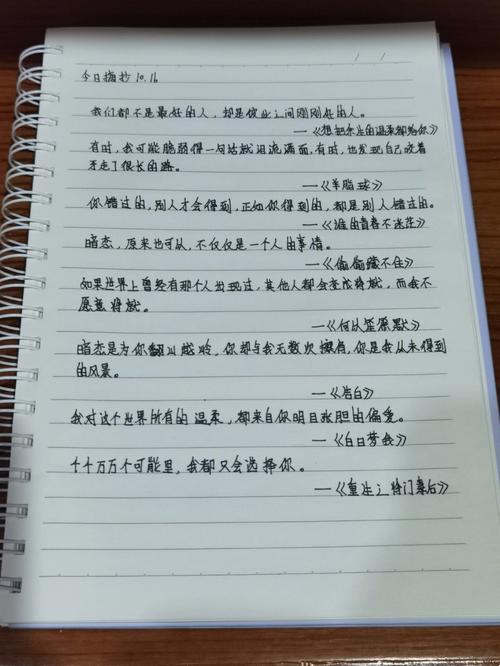 今日摘抄 10.16
我们都不是最好的人，却是彼此之间刚刚好的人。
—《想把余生的温柔都给你》
有时，我可能脆弱得一句话就泪流满面，有时，也发现自己咬着
牙走了很长的路。
—《羊脂球》
你错过的，别人才会得到，正如你得到的，都是别人错过的。
—《谁的青春不迷茫》
暗恋，原来也可以，不仅仅是一个人的事情。
—《偷偷藏不住》
如果世界上曾经有那个人出现过，其他人都会变成将就，而我不
愿意将就。
—《何以笙箫默》
暗恋是为你翻山越岭，你却与我无数次擦肩，你是我从未得到
的风景。
—《告白》
我对这个世界所有的温柔，都来自你明目张胆的偏爱。
—《白日梦我》
千千万万个可能里，我都只会选择你。
—《重生之将门毒后》